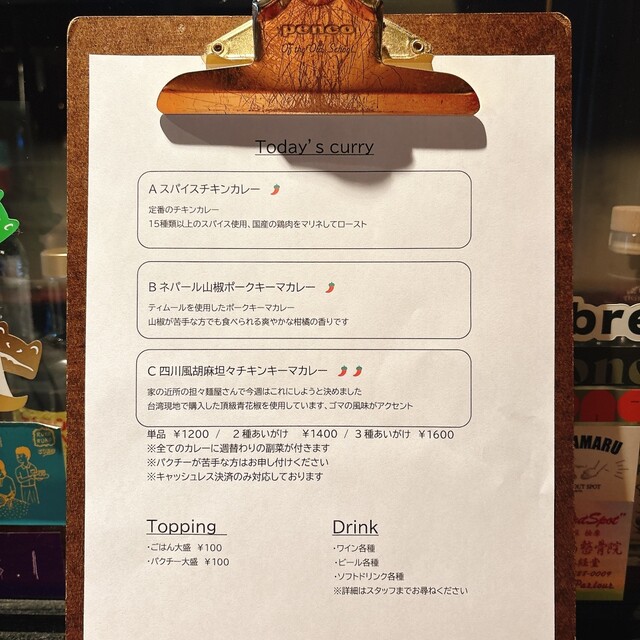 penco
Of the Old School
Today's curry
A スパイスチキンカレー
定番のチキンカレー
15種類以上のスパイス使用、国産の鶏肉をマリネしてロースト
B ネパール山椒ポークキーマカレー
ティムールを使用したポークキーマカレー
山椒が苦手な方でも食べられる爽やかな柑橘の香りです
C 四川風胡麻坦々チキンキーマカレー
家の近所の担々麺屋さんで今週はこれにしようと決めました
台湾現地で購入した頂級青花椒を使用しています、ゴマの風味がアクセント
単品 ¥1200 / 2種あいがけ ¥1400 / 3種あいがけ ¥1600
※全てのカレーに週替わりの副菜が付きます
※パクチーが苦手な方はお申し付けください
※キャッシュレス決済のみ対応しております
Topping
・ごはん大盛 ¥100
・パクチー大盛 ¥100
Drink
・ワイン各種
・ビール各種
・ソフトドリンク各種
※詳細はスタッフまでお尋ねください
bre
AMARU